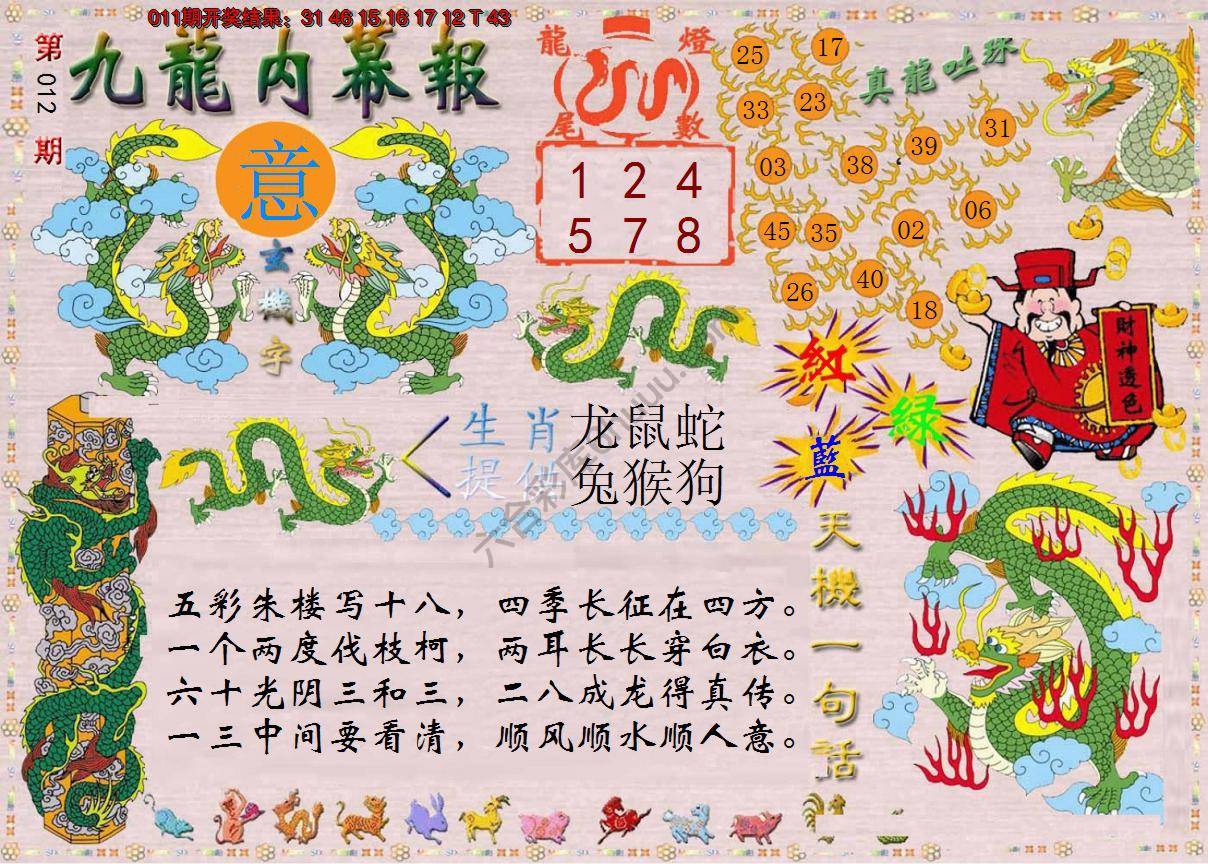 011期开奖结果：31 46 15 16 17 12 T 43
第012期
九龍内幕報
意
玄機字
龍燈尾數
1 2 4
5 7 8
真龍吐珠
25 17
33 23
03 38 39 31
45 35 02 06
26 40 18
財神透色
紅
綠
藍
生肖 龙鼠蛇
提供 兔猴狗
天機一句話
五彩朱楼写十八，四季长征在四方。
一个两度伐枝柯，两耳长长穿白衣。
六十光阴三和三，二八成龙得真传。
一三中间要看清，顺风顺水顺人意。